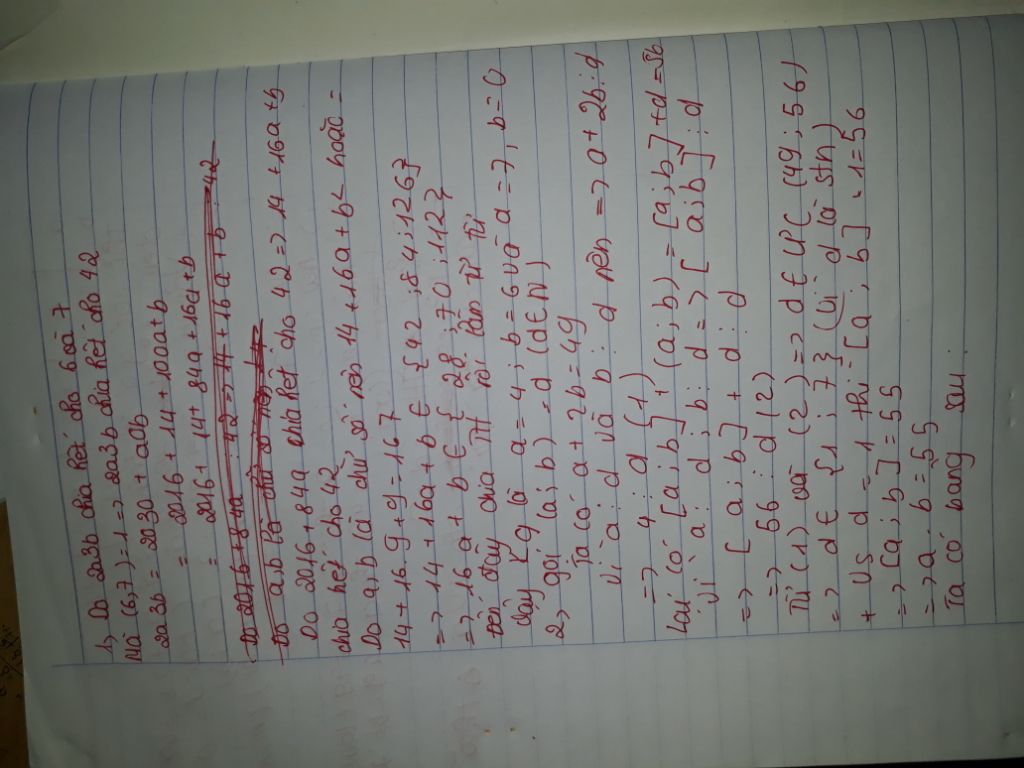 1, Do 2a3b chia hết cho 6 và 7
Mà (6,7)=1 => 2a3b chia hết cho 42
2a3b = 2030 + a0b
= 2016 + 14 + 100a+b
= 2016 + 14 + 84a + 16a+b
Do 2016 + 84a ⋮ 42 => 14 + 16a + b ⋮ 42
Do a,b là chữ số nên
Do 2016 + 84a chia hết cho 42 => 14 + 16a+b
chia hết cho 42
Do a,b là chữ số nên 14 + 16a + b < hoặc =
14 + 16.9 + 9 = 167
=> 14 + 16a + b ∈ {42; 84; 126}
=> 16a + b ∈ { 28; 70; 112}
Đến đây chia TH rồi làm từ từ
Đây Kq là a = 4; b = 6 và a = 7, b = 0
2, gọi (a;b) = d (d∈N)
Ta có a + 2b = 49
Vì a ⋮ d và b ⋮ d nên => a + 2b ⋮ d
=> 49 ⋮ d (1)
Lại có [a;b] + (a;b) = [a;b] + d = 56
Vì a ⋮ d; b ⋮ d => [ a;b] ⋮ d
=> [ a;b] + d ⋮ d
=> 56 ⋮ d (2)
Từ (1) và (2) => d ∈ ƯC (49; 56)
=> d ∈ {1; 7} (vì d là stn)
+ Vs d = 1 thì [a; b] . 1 = 56
=> [a; b] = 55
=> a. b = 55
Ta có bảng sau: